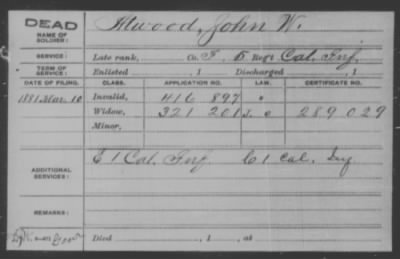 DEAD
Atwood, John W.
NAME OF
SOLDIER:
SERVICE:
Late rank, Co. F, 5 Reg't Cal. Inf.
TERM OF
SERVICE:
Enlisted , 1 Discharged , 1
DATE OF FILING. CLASS. APPLICATION NO. LAW. CERTIFICATE NO.
1881 Mar. 10 Invalid, 416 897 "
Widow, 321 201 289 029
Minor,
ADDITIONAL
SERVICES:
E 1 Cal. Inf C 1 Cal. Inf
REMARKS:
Died , 1 , at